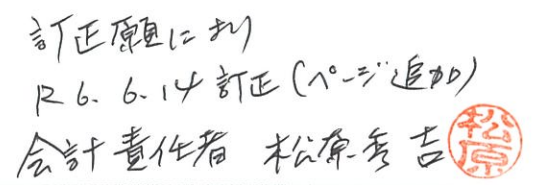 訂正願により
R6.6.14訂正(ページ追加)
会計責任者 松原秀吉
松原